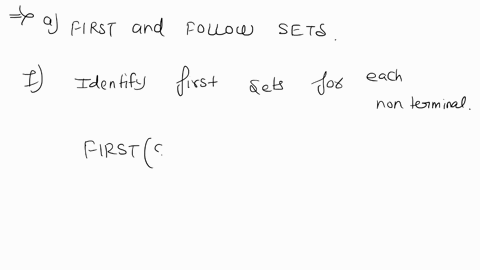 ⇒ a) FIRST and FOLLOW SETS.
I) Identify first sets for each
non terminal.
FIRST(